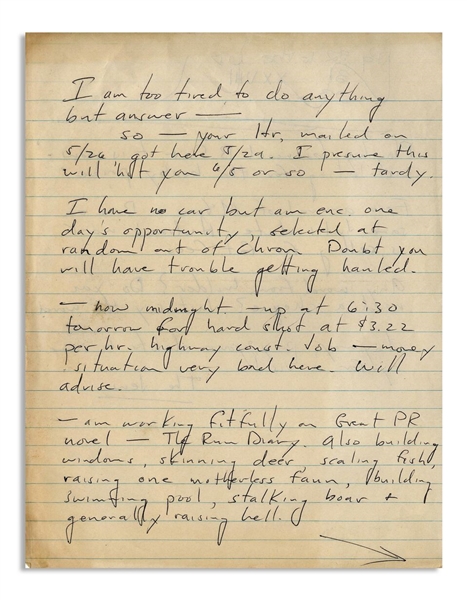 I am too tired to do anything
but answer —
so — your ltr, mailed on
5/26 got here 5/29. I presume this
will hit you 6/5 or so — tardy.
I have no car but am enc. one
day's opportunity selected at
random out of Chron. Doubt you
will have trouble getting hauled.
— now midnight — up at 6:30
tomorrow for hard shot at $3.22
per hr. highway const. job — money
situation very bad here. Will
advise.
— am working fitfully on Great PR
novel — The Rum Diary. Also building
windows, skinning deer, scaling fish,
raising one motherless faun, building
swimming pool, stalking boar &
generally raising hell.